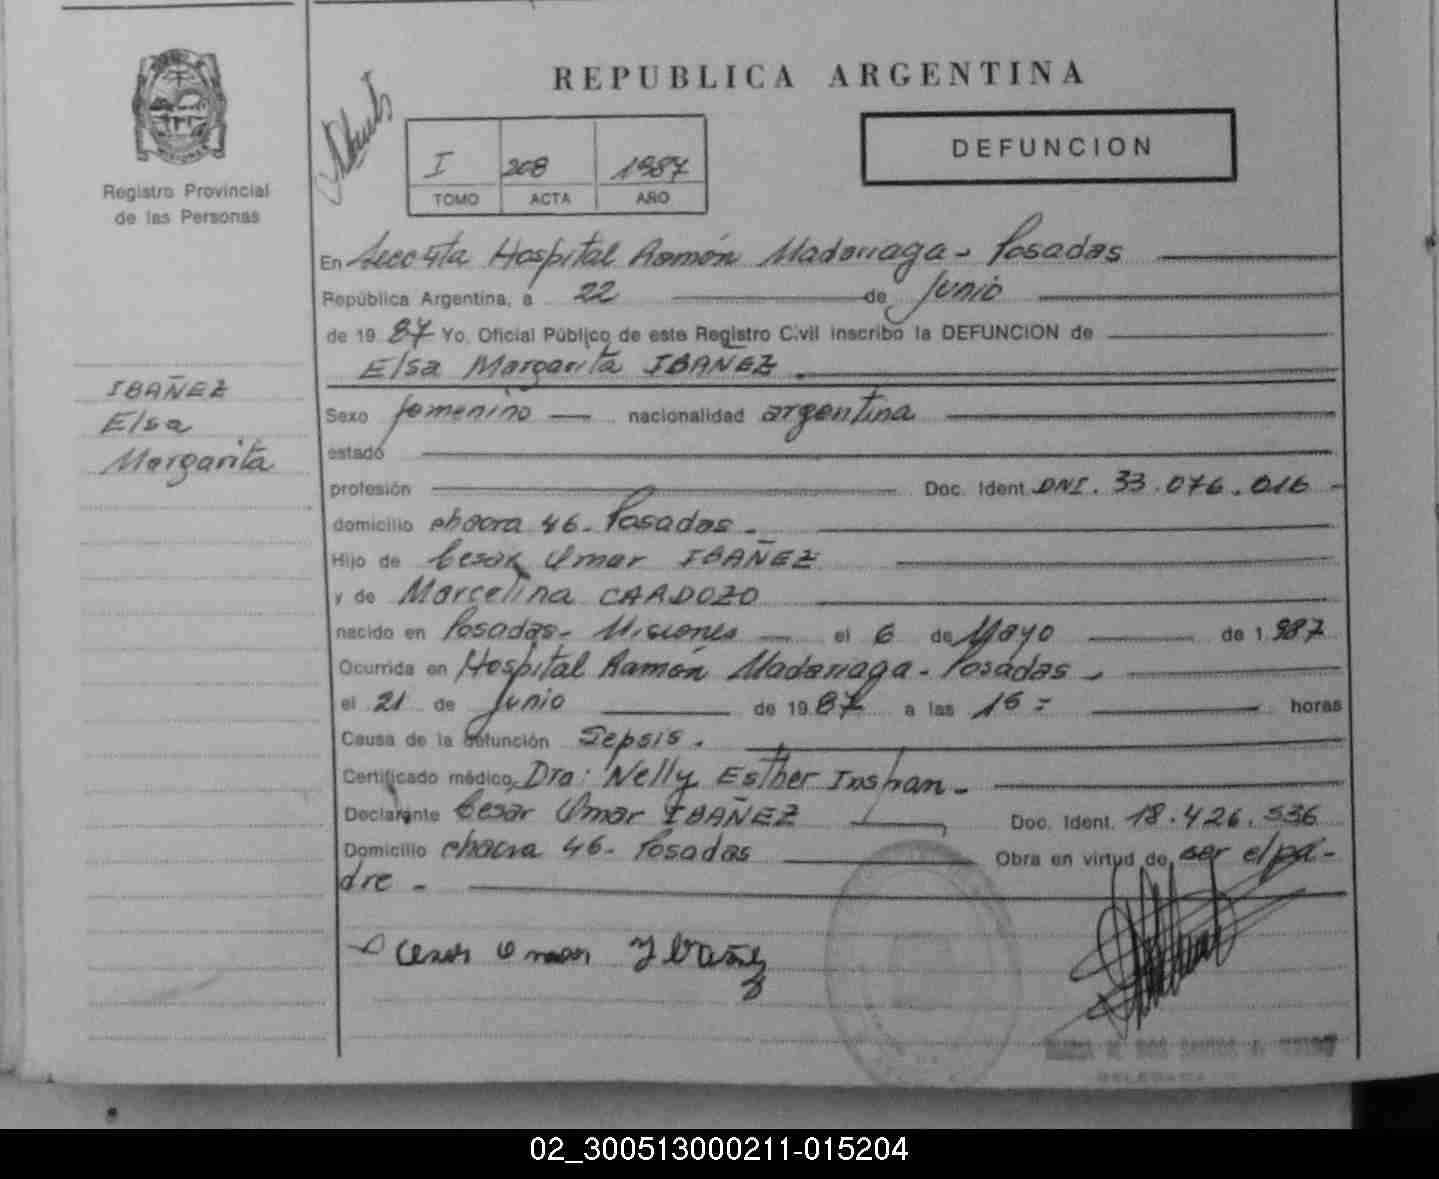 REPUBLICA ARGENTINA
MISIONES
Registro Provincial
de las Personas
I 208 1987
TOMO ACTA AÑO
DEFUNCION
En Hospital Ramón Madariaga - Posadas
República Argentina, a 22 de Junio
de 19 87 Yo, Oficial Público de este Registro Civil inscribo la DEFUNCION de
Elsa Margarita IBAÑEZ.
IBAÑEZ
Elsa
Margarita
Sexo femenino nacionalidad argentina
estado
profesión Doc. Ident. DNI. 33.076.016
domicilio chacra 46. Posadas.
Hijo de Cesar Omar IBAÑEZ
y de Marcelina CARDOZO
nacido en Posadas - Misiones el 6 de Mayo de 1 987
Ocurrida en Hospital Ramón Madariaga - Posadas.
el 21 de Junio de 19 87 a las 16 horas
Causa de la defunción Sepsis.
Certificado médico, Dra: Nelly Esther
Declarante Cesar Omar IBAÑEZ Doc. Ident. 18.426.536
Domicilio chacra 46. Posadas Obra en virtud de ser el pa-
dre -
Cesar Omar Ybañez
02_300513000211-015204